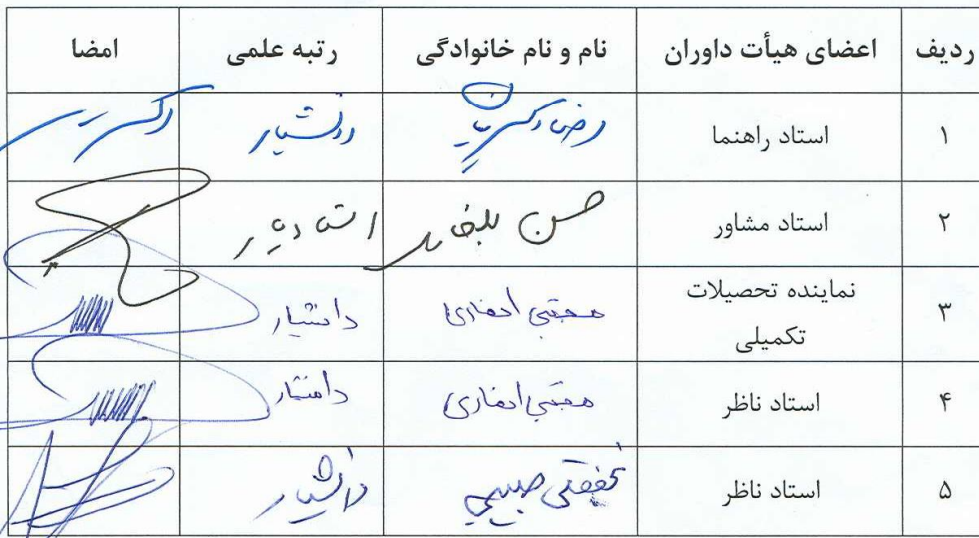 ردیف اعضای هیأت داوران نام و نام خانوادگی رتبه علمی امضا
۱ استاد راهنما رضا دانشیار
۲ استاد مشاور حسن استادیار
۳ نماینده تحصیلات تکمیلی مجتبی انصاری دانشیار
۴ استاد ناظر مجتبی انصاری دانشیار
۵ استاد ناظر دانشیار